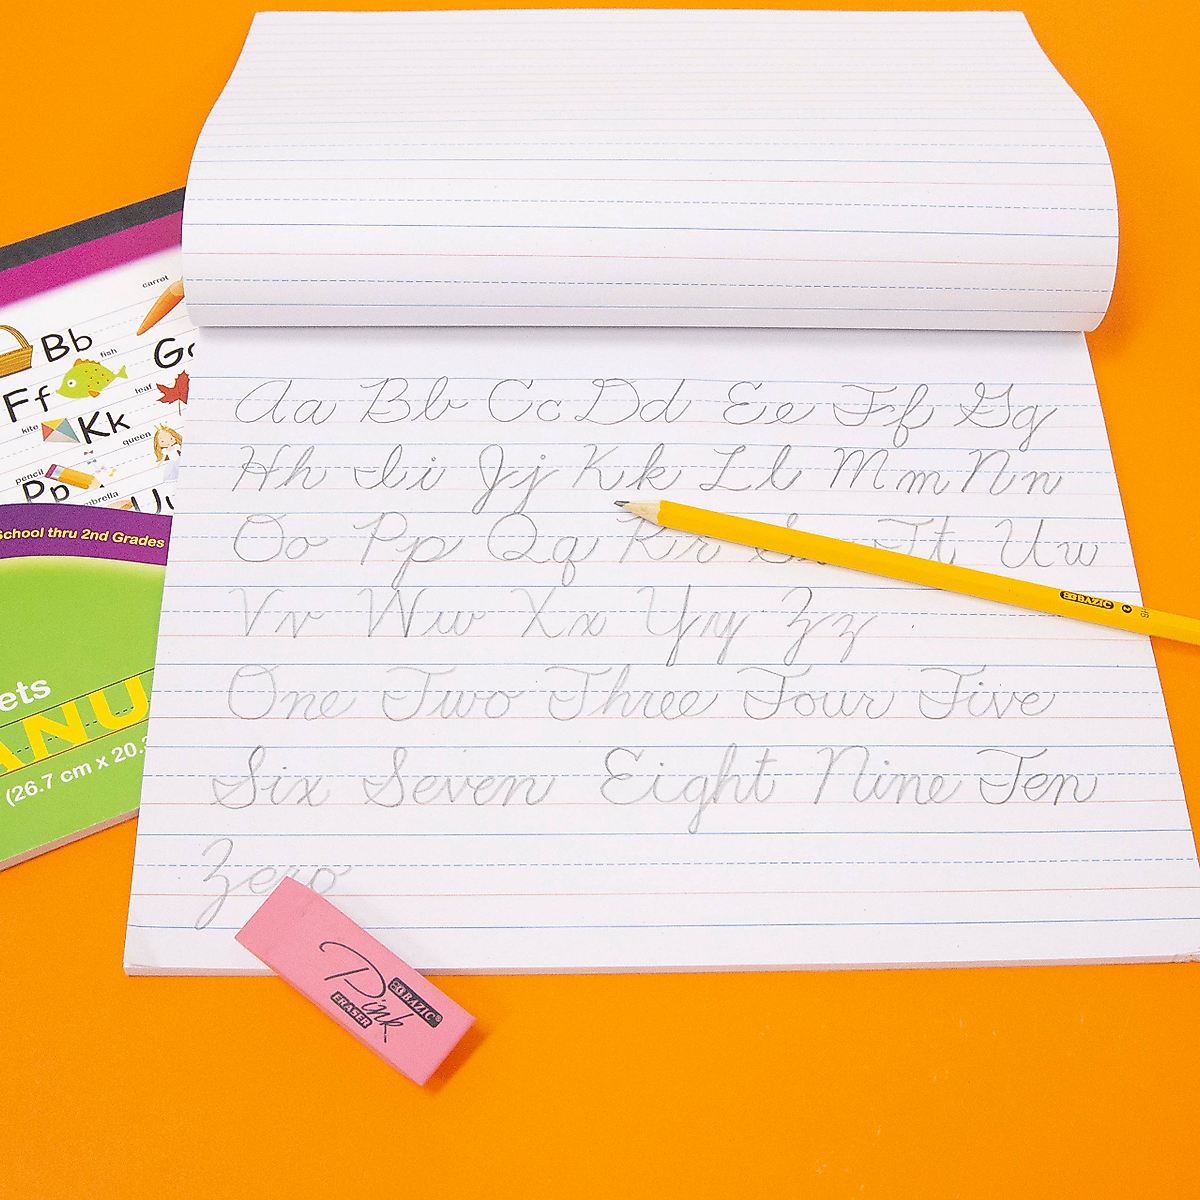 Aa Bb Cc Dd Ee Ff Gg
Hh Ii Jj Kk Ll Mm Nn
Oo Pp Qq Rr Tt Uu
Vv Ww Xx Yy Zz
One Two Three Four Five
Six Seven Eight Nine Ten
Zero
BAZIC 2 HB
Pink
BAZIC®
ERASER
carrot
Bb
fish
Ff
leaf
kite
Kk
queen
pencil
Pp
School thru 2nd Grades
(26.7 cm x 20.3